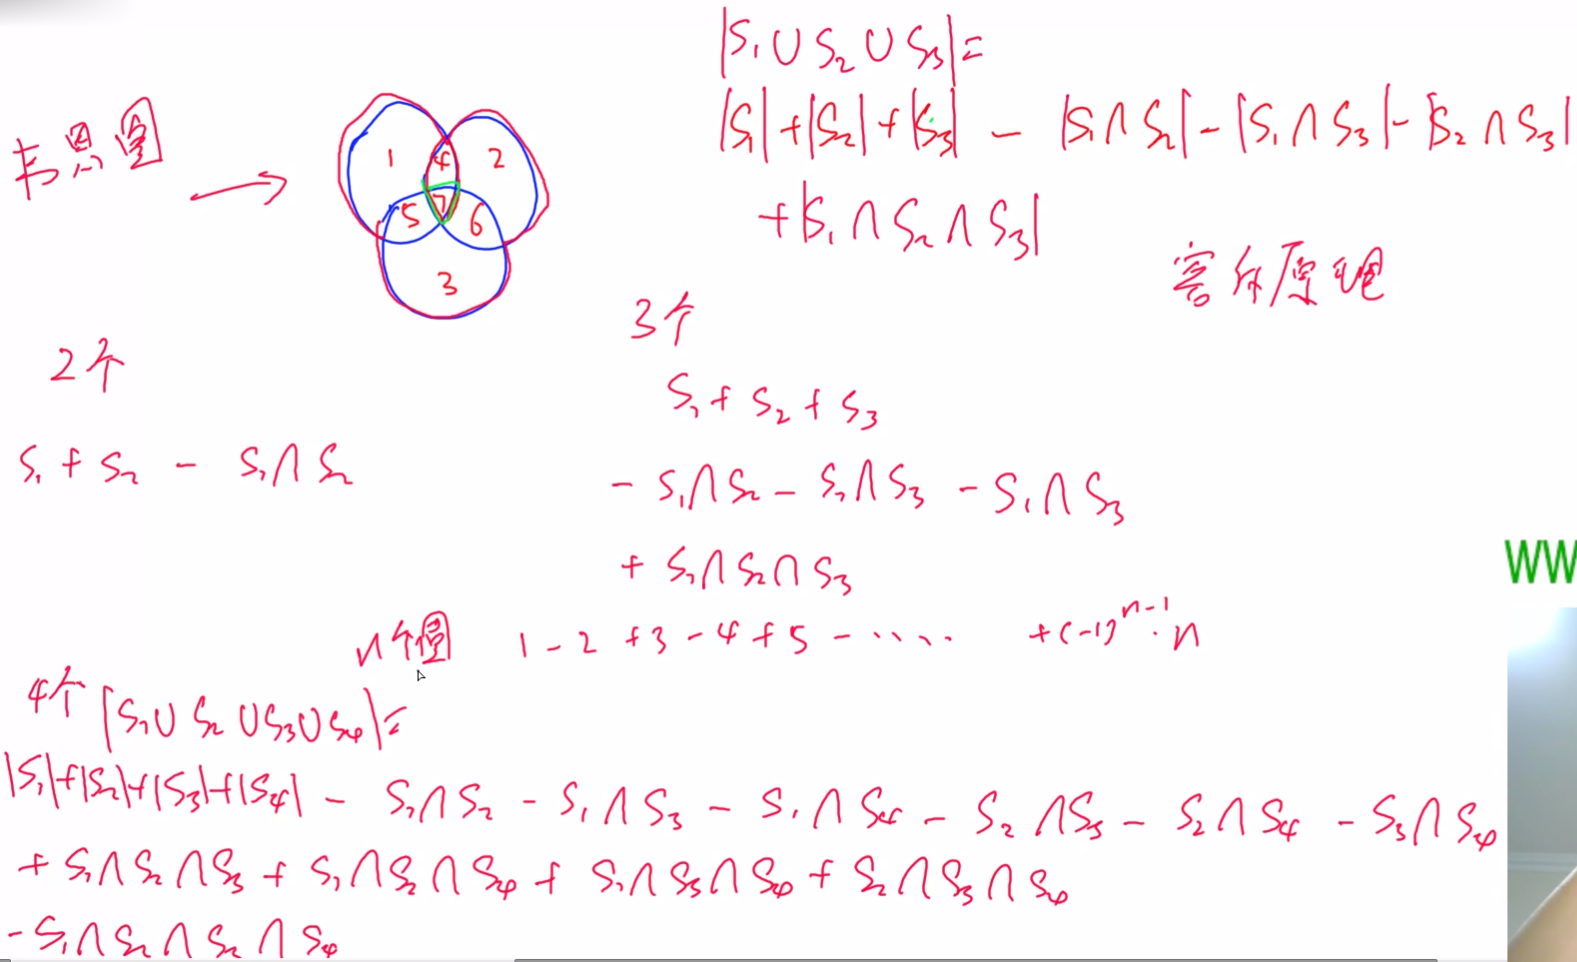 |S₁∪S₂∪S₃|=
|S₁|+|S₂|+|S₃| - |S₁∩S₂|-|S₁∩S₃|-|S₂∩S₃|
+|S₁∩S₂∩S₃|
韦恩图
1 4 2
5 7 6
3
容斥原理
2个
S₁+S₂ - S₁∩S₂
3个
S₁+S₂+S₃
- S₁∩S₂ - S₂∩S₃ - S₁∩S₃
+ S₁∩S₂∩S₃
WW
n个圆 1-2+3-4+5-····· +(-1)ⁿ⁻¹·n
4个 |S₁∪S₂∪S₃∪S₄|=
|S₁|+|S₂|+|S₃|+|S₄| - S₁∩S₂ - S₁∩S₃ - S₁∩S₄ - S₂∩S₃ - S₂∩S₄ - S₃∩S₄
+ S₁∩S₂∩S₃ + S₁∩S₂∩S₄ + S₁∩S₃∩S₄ + S₂∩S₃∩S₄
-S₁∩S₂∩S₂∩S₄